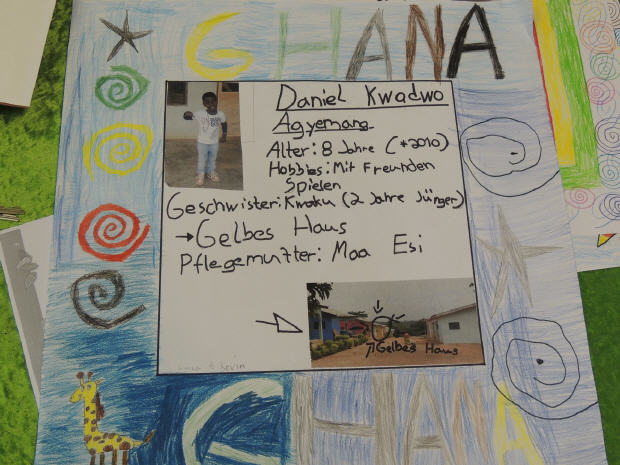 GHANA
Daniel Kwadwo
Agyemang
Alter: 8 Jahre (*2010)
Hobbies: Mit Freunden
Spielen
Geschwister: Kwaku (2 Jahre Jünger)
→ Gelbes Haus
Pflegemutter: Maa Esi
Gelbes Haus
Kevin
GHANA